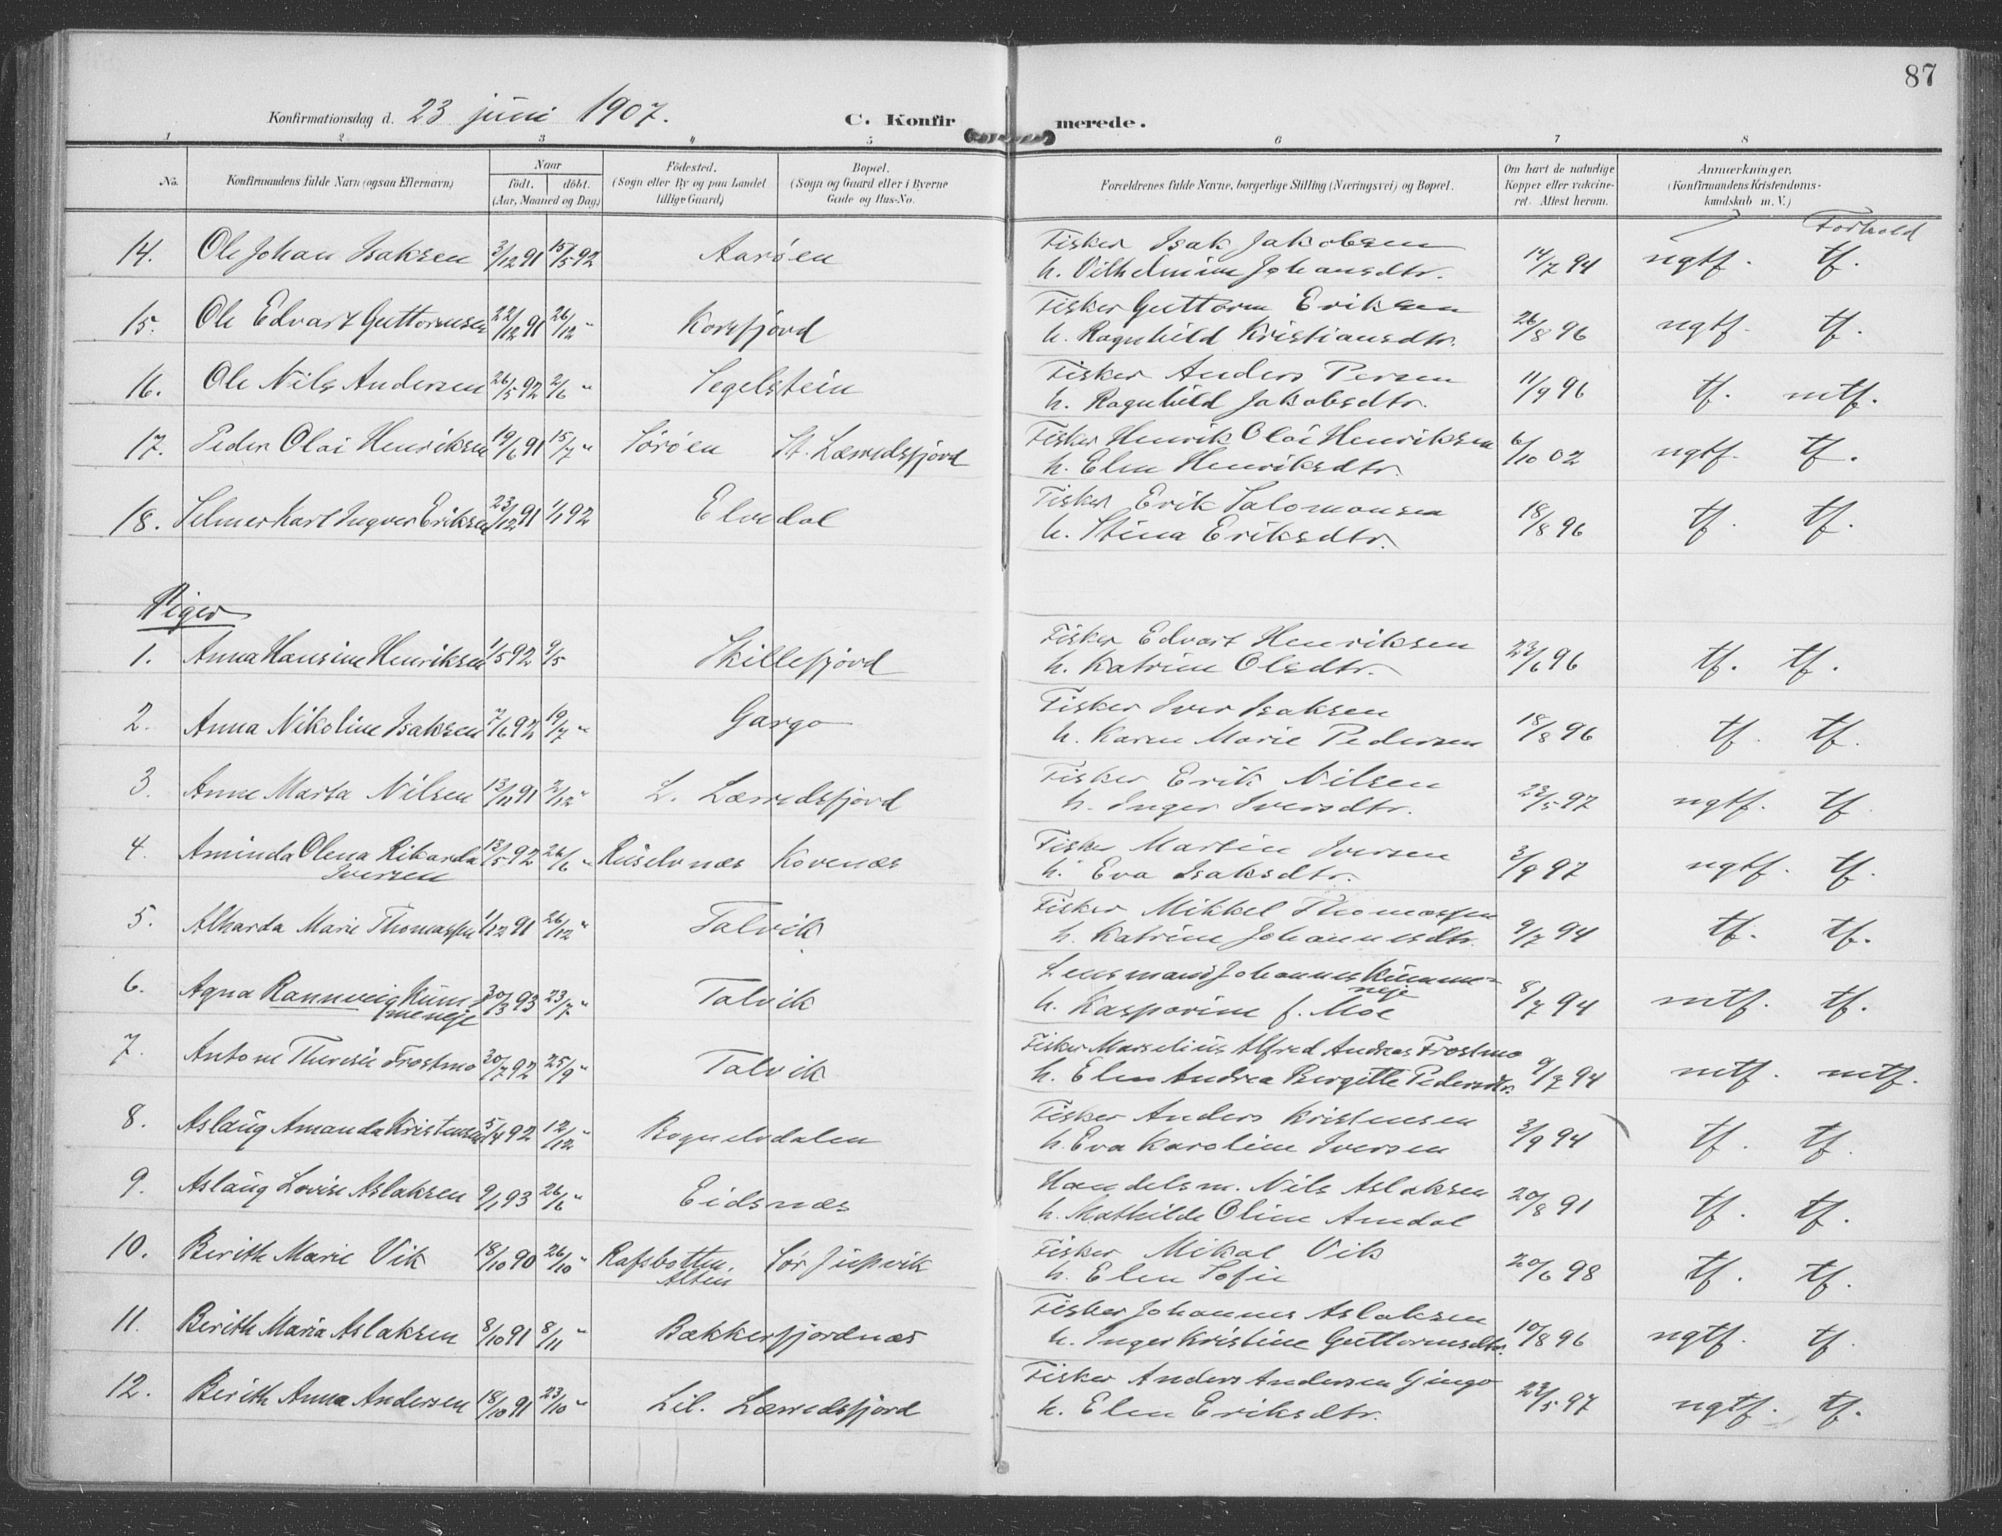 87
Konfirmationsdag d. 23 juni 1907.
C. Konfirmerede.
1 2 3 4 5 6 7 8
No. Konfirmandens fulde Navn (ogsaa Efternavn) Naar födt. döbt. (Aar, Maaned og Dag) Födested. (Sogn eller By og paa Landet tillige Gaard) Bopæl. (Sogn og Gaard eller i Byerne Gade og Hus-No. Forældrenes fulde Navne, borgerlige Stilling (Næringsvei) og Bopæl. Om havt de naturlige Kopper eller vakcineret. Attest herom. Anmærkninger. (Konfirmandens Kristendomskundskab m. V.)
Forhold
14. Ole Johan Isaksen 3/12 91 15/5 92 Aarøen Fisker Isak Jakobsen 14/7 94 ngtf. tf.
h. Vilhelmine Johansdtr.
15. Ole Edvart Guttormsen 22/12 91 26/12 " Korsfjord Fisker Guttorm Eriksen 26/8 96 ngtf. tf.
h. Ragnhild Kristiansdtr.
16. Ole Nils Andersen 26/5 92 2/6 " Segelstein Fisker Anders Persen 11/9 96 tf. mtf.
h. Ragnhild Jakobsdtr.
17. Peder Olai Henriksen 19/6 91 15/7 " Sørøen St. Lærredsfjord Fisker Henrik Olai Henriksen 6/10 02 ngtf. tf.
h. Elen Henriksdtr.
18. Selmer Karl Ingver Eriksen 23/12 91 1/1 92 Elvedal Fisker Erik Salomonsen 18/8 96 tf. tf.
h. Stina Eriksdtr.
Piger
1. Anna Hansine Henriksen 1/5 92 9/5 Skillefjord Fisker Edvart Henriksen 23/6 96 tf. tf.
h. Katrine Olsdtr.
2. Anna Nikoline Isaksen 7/6 92 19/7 " Gargo Fisker Iver Isaksen 18/8 96 tf. tf.
h. Karen Marie Pedersen
3. Anne Marta Nilsen 13/11 91 2/12 " L. Lærredsfjord Fisker Erik Nilsen 23/5 97 ngtf. tf
h. Inger Iversdtr.
4. Aminda Olena Rikarda 13/5 92 26/6 " Russelvnæs Kovenæs Fisker Martin Iversen 3/9 97 ngtf. tf.
Iversen h. Eva Isaksdtr.
5. Alharda Marie Thomassen 1/12 91 26/12 " Talvik Fisker Mikkel Thomassen 9/7 94 tf. tf.
h. Katrine Johannesdtr.
6. Agna Rannveig Kummeneje 30/3 93 23/7 " Talvik Lensmand Johannes Kummeneje 8/7 94 mtf. tf.
h. Kasparine f. Moe
7. Antone Theresie Frostmo 30/7 92 25/9 " Talvik Fisker Marselius Alfred Andreas Frostmo 9/7 94 mtf. mtf.
h. Elen Andrea Bergitte Pedersdtr.
8. Aslaug Amanda Kristensen 5/4 92 12/12 " Bognelvdalen Fisker Anders Kristensen 3/9 94 tf. tf.
h. Eva Karoline Iversen
9. Aslaug Lovise Aslaksen 9/1 93 26/6 " Eidsnæs Handelsm. Nils Aslaksen 20/8 91 tf. tf.
h. Mathilde Oline Amdal
10. Berith Marie Vik 18/10 90 26/10 " Rafsbotten, Alten Sør Tufsvik Fisker Mikal Vik 20/6 98 tf. tf.
h. Elen Sofie
11. Berith Maria Aslaksen 8/10 91 8/11 " Bækkerfjordnæs Fisker Johannes Aslaksen 10/8 96 ngtf. tf.
h. Inger Kristine Guttormsdtr.
12. Berith Anna Andersen 18/10 91 23/10 " Lil. Lærredsfjord Fisker Anders Andersen Gingo 23/5 97 ngtf. tf.
h. Elen Eriksdtr.